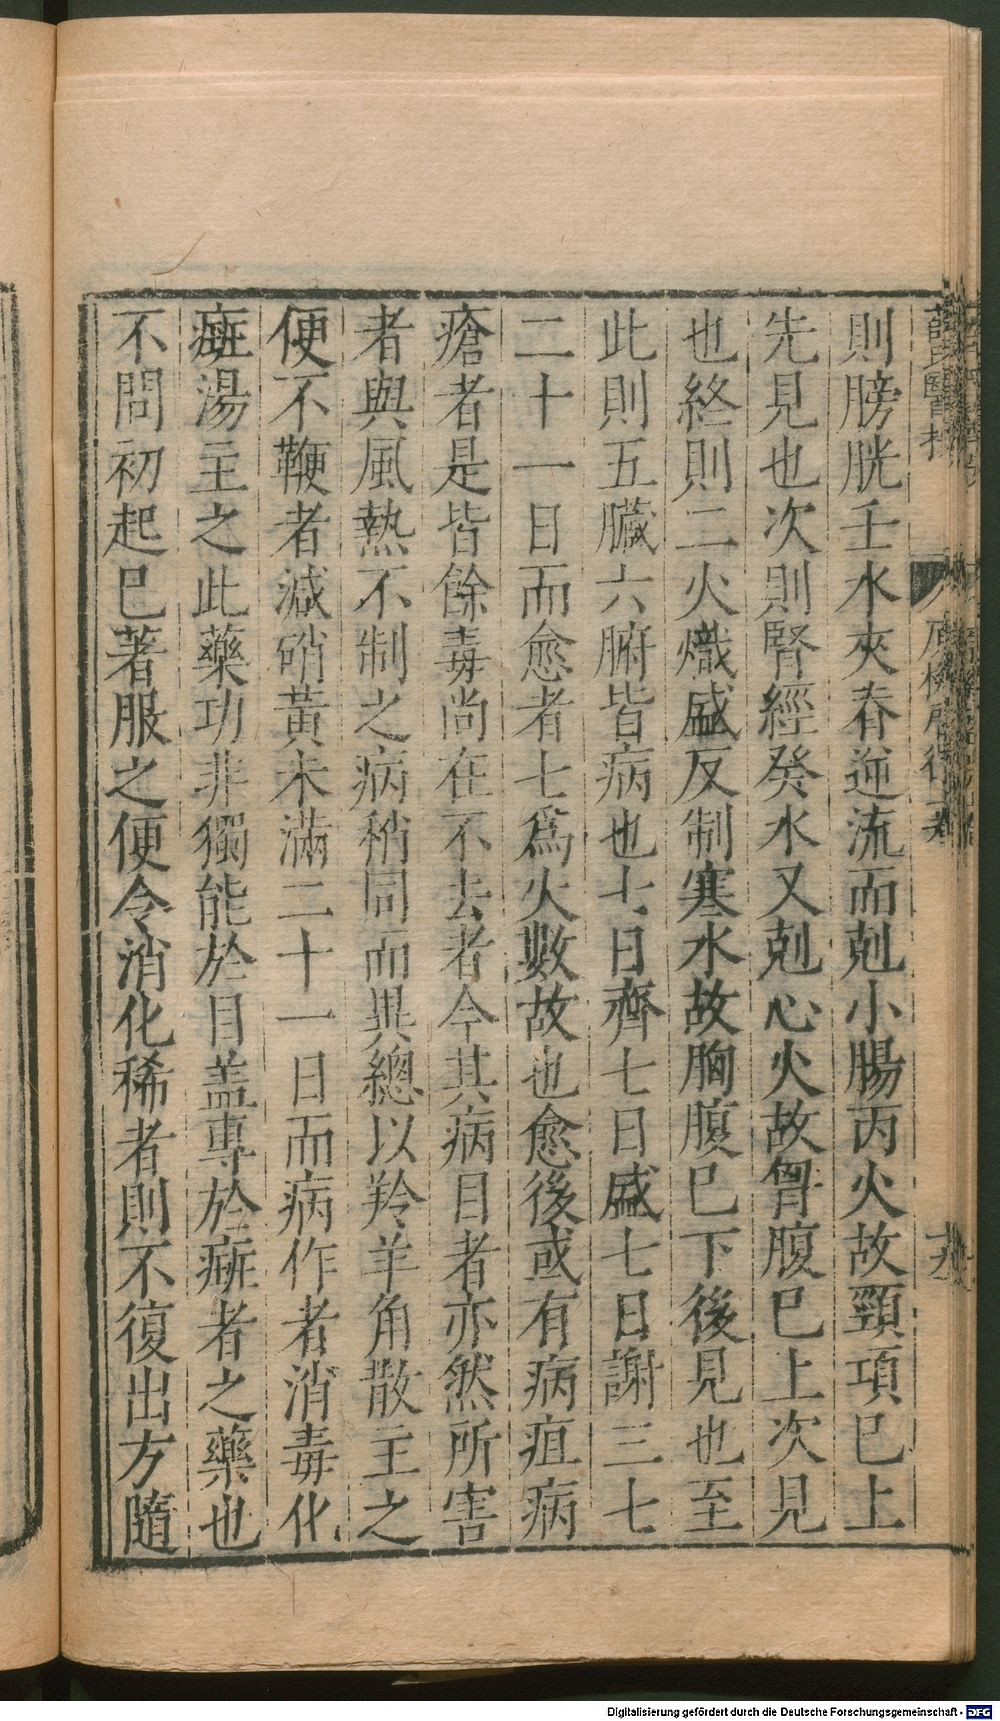 則膀胱壬水夾春逆流而剋小腸丙火故頸項已上
先見也次則腎經癸水又剋心火故胷腹已上次見
也終則二火熾盛反制寒水故胸腹已下後見也至
此則五臟六腑皆病也七日齊七日盛七日謝三七
二十一日而愈者七爲火數故也愈後或有病疽病
瘡者是皆餘毒尚在不去者今其病目者亦然所害
者與風熱不制之病稍同而異總以羚羊角散主之
便不鞕者減硝黃未滿二十一日而病作者消毒化
癍湯主之此藥功非獨能於目盖專於癍者之藥也
不問初起已著服之便令消化稀者則不復出方隨
Digitalisierung gefördert durch die Deutsche Forschungsgemeinschaft - DFG